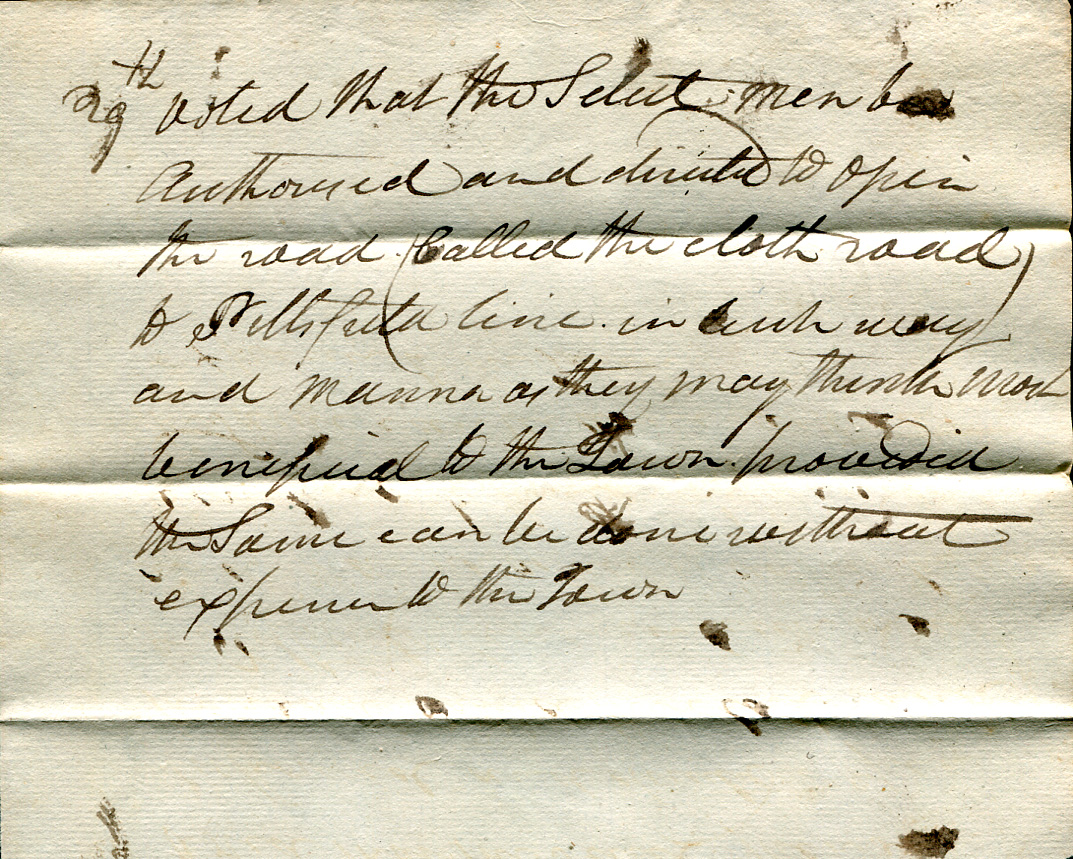 29th voted that the Select men be
Authorised and directed to open
the road (Called the cloth road)
to Pittsfield line in such way
and manner as they may think most
beneficial to the Town provided
the Same can be done without
expence to the Town